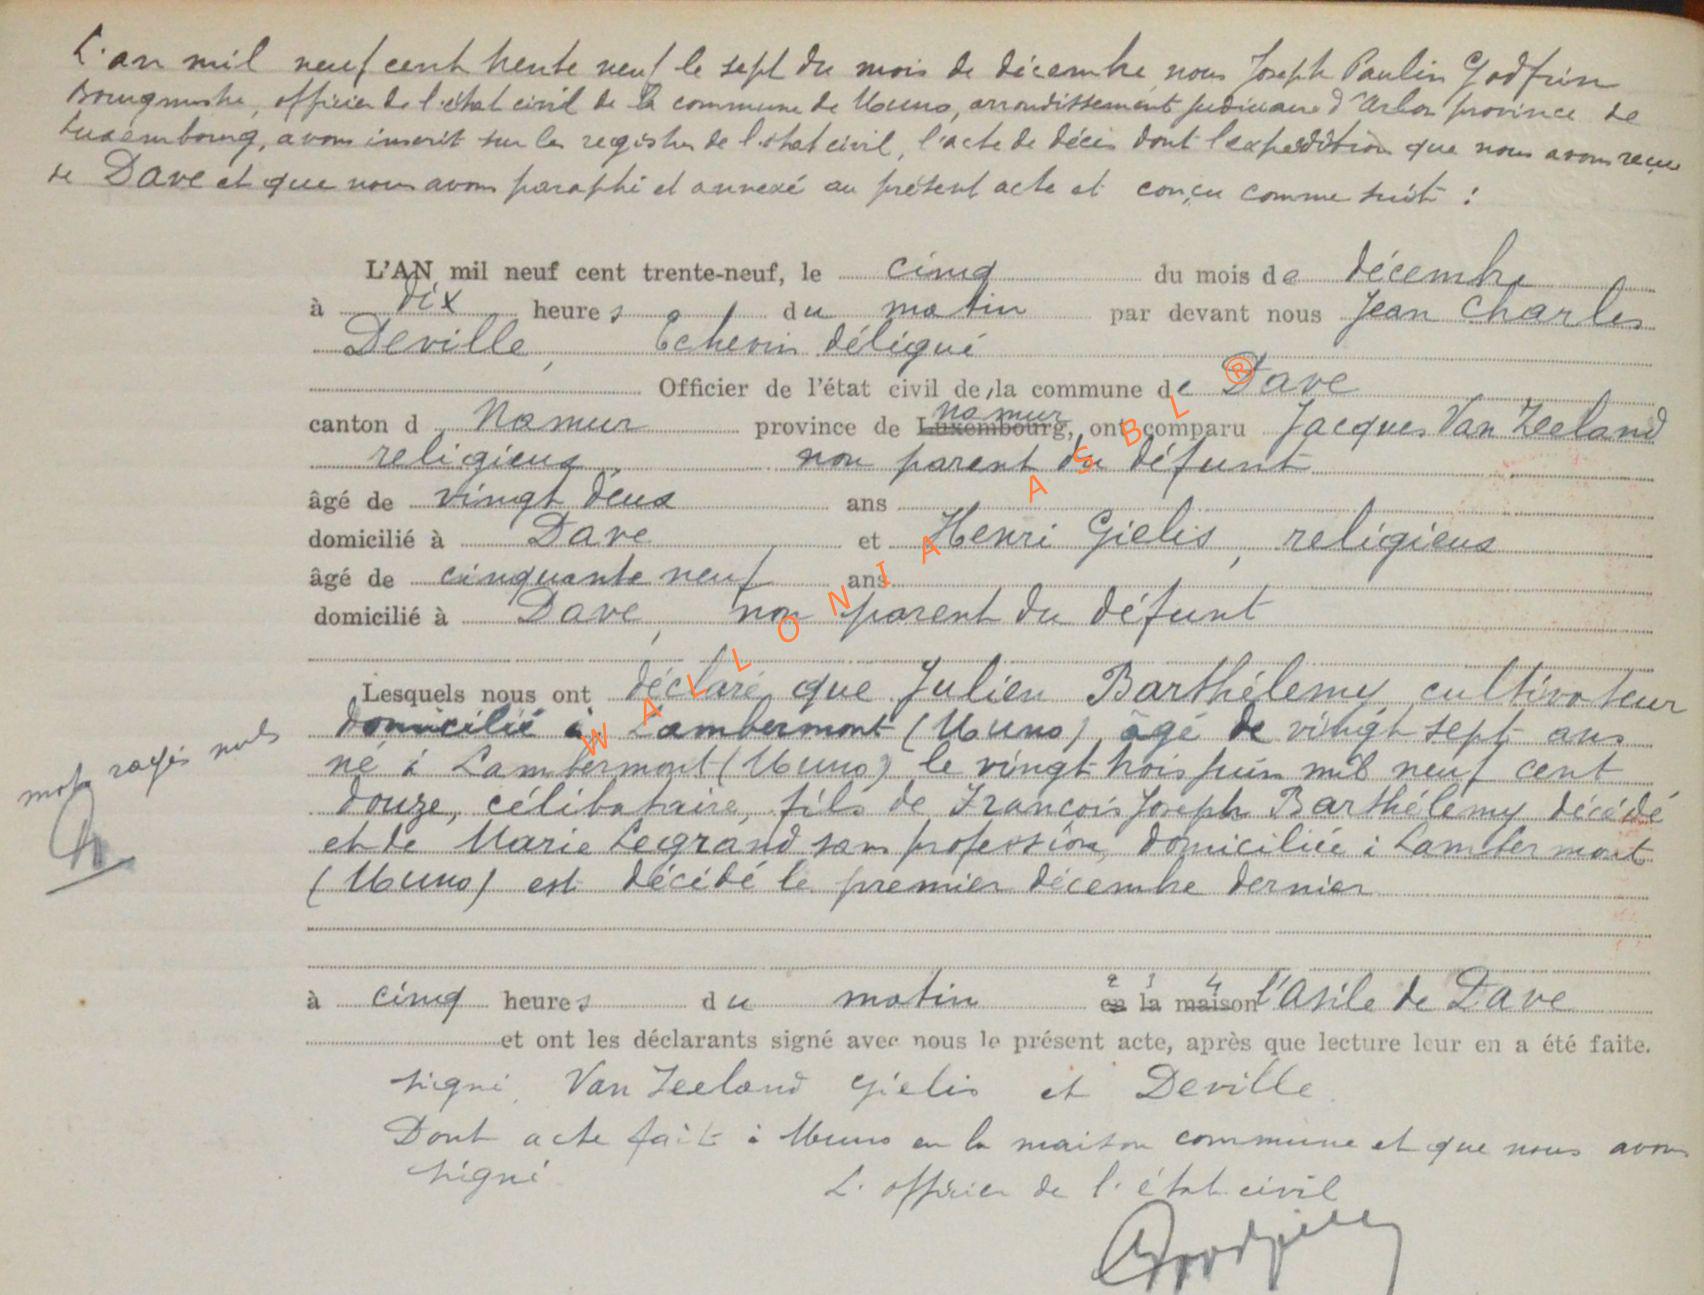 L'an mil neuf cent trente neuf le sept du mois de décembre, nous Joseph Paulin Godfrin
Bourgmestre, officier de l'état civil de la commune de Muno, arrondissement judiciaire d'Arlon province de
Luxembourg, avons inscrit sur les registres de l'état civil, l'acte de décès dont l'expédition que nous avons reçue
de Dave et que nous avons paraphé et annexé au présent acte et conçu comme suit :
L'AN mil neuf cent trente-neuf, le cinq du mois de décembre
à dix heures du matin par devant nous Jean Charles
Deville, Echevin délégué
Officier de l'état civil de la commune de Dave ®
Namur
canton d Namur province de Luxembourg, ont comparu Jacques Van Zeeland
religieux non parent du défunt
âgé de vingt deux ans
domicilié à Dave et Henri Gielis, religieux
âgé de cinquante neuf ans
domicilié à Dave, non parent du défunt
Lesquels nous ont déclaré que Julien Barthélemy cultivateur
domicilié à Lambermont (Muno) âgé de vingt sept ans
né à Lambermont (Muno) le vingt trois juin mil neuf cent
douze, célibataire, fils de François Joseph Barthélemy décédé
et de Marie Legrand sans profession, domiciliée à Lambermont
(Muno) est décédé le premier décembre dernier
mots rayés nuls
2 3 4
à cinq heures du matin en la maison l'Asile de Dave
et ont les déclarants signé avec nous le présent acte, après que lecture leur en a été faite.
signé, Van Zeeland Gielis et Deville.
Dont acte fait à Muno en la maison commune et que nous avons
signé
L'officier de l'état civil
Godfrin
WALLONIA ASBL